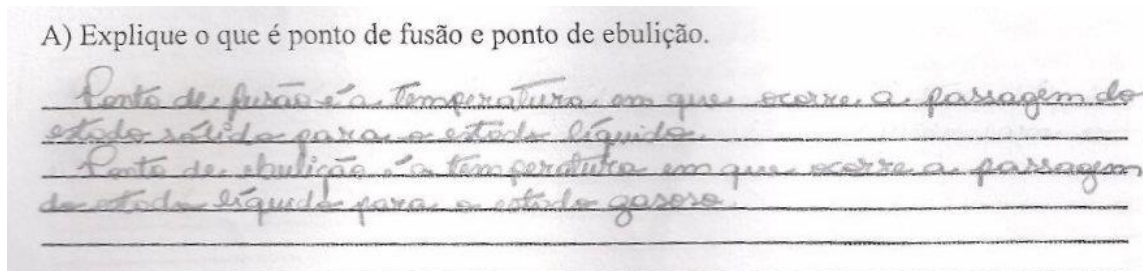 A) Explique o que é ponto de fusão e ponto de ebulição.
Ponto de fusão é a temperatura em que ocorre a passagem do
estado sólido para o estado líquido.
Ponto de ebulição é a temperatura em que ocorre a passagem
do estado líquido para o estado gasoso.